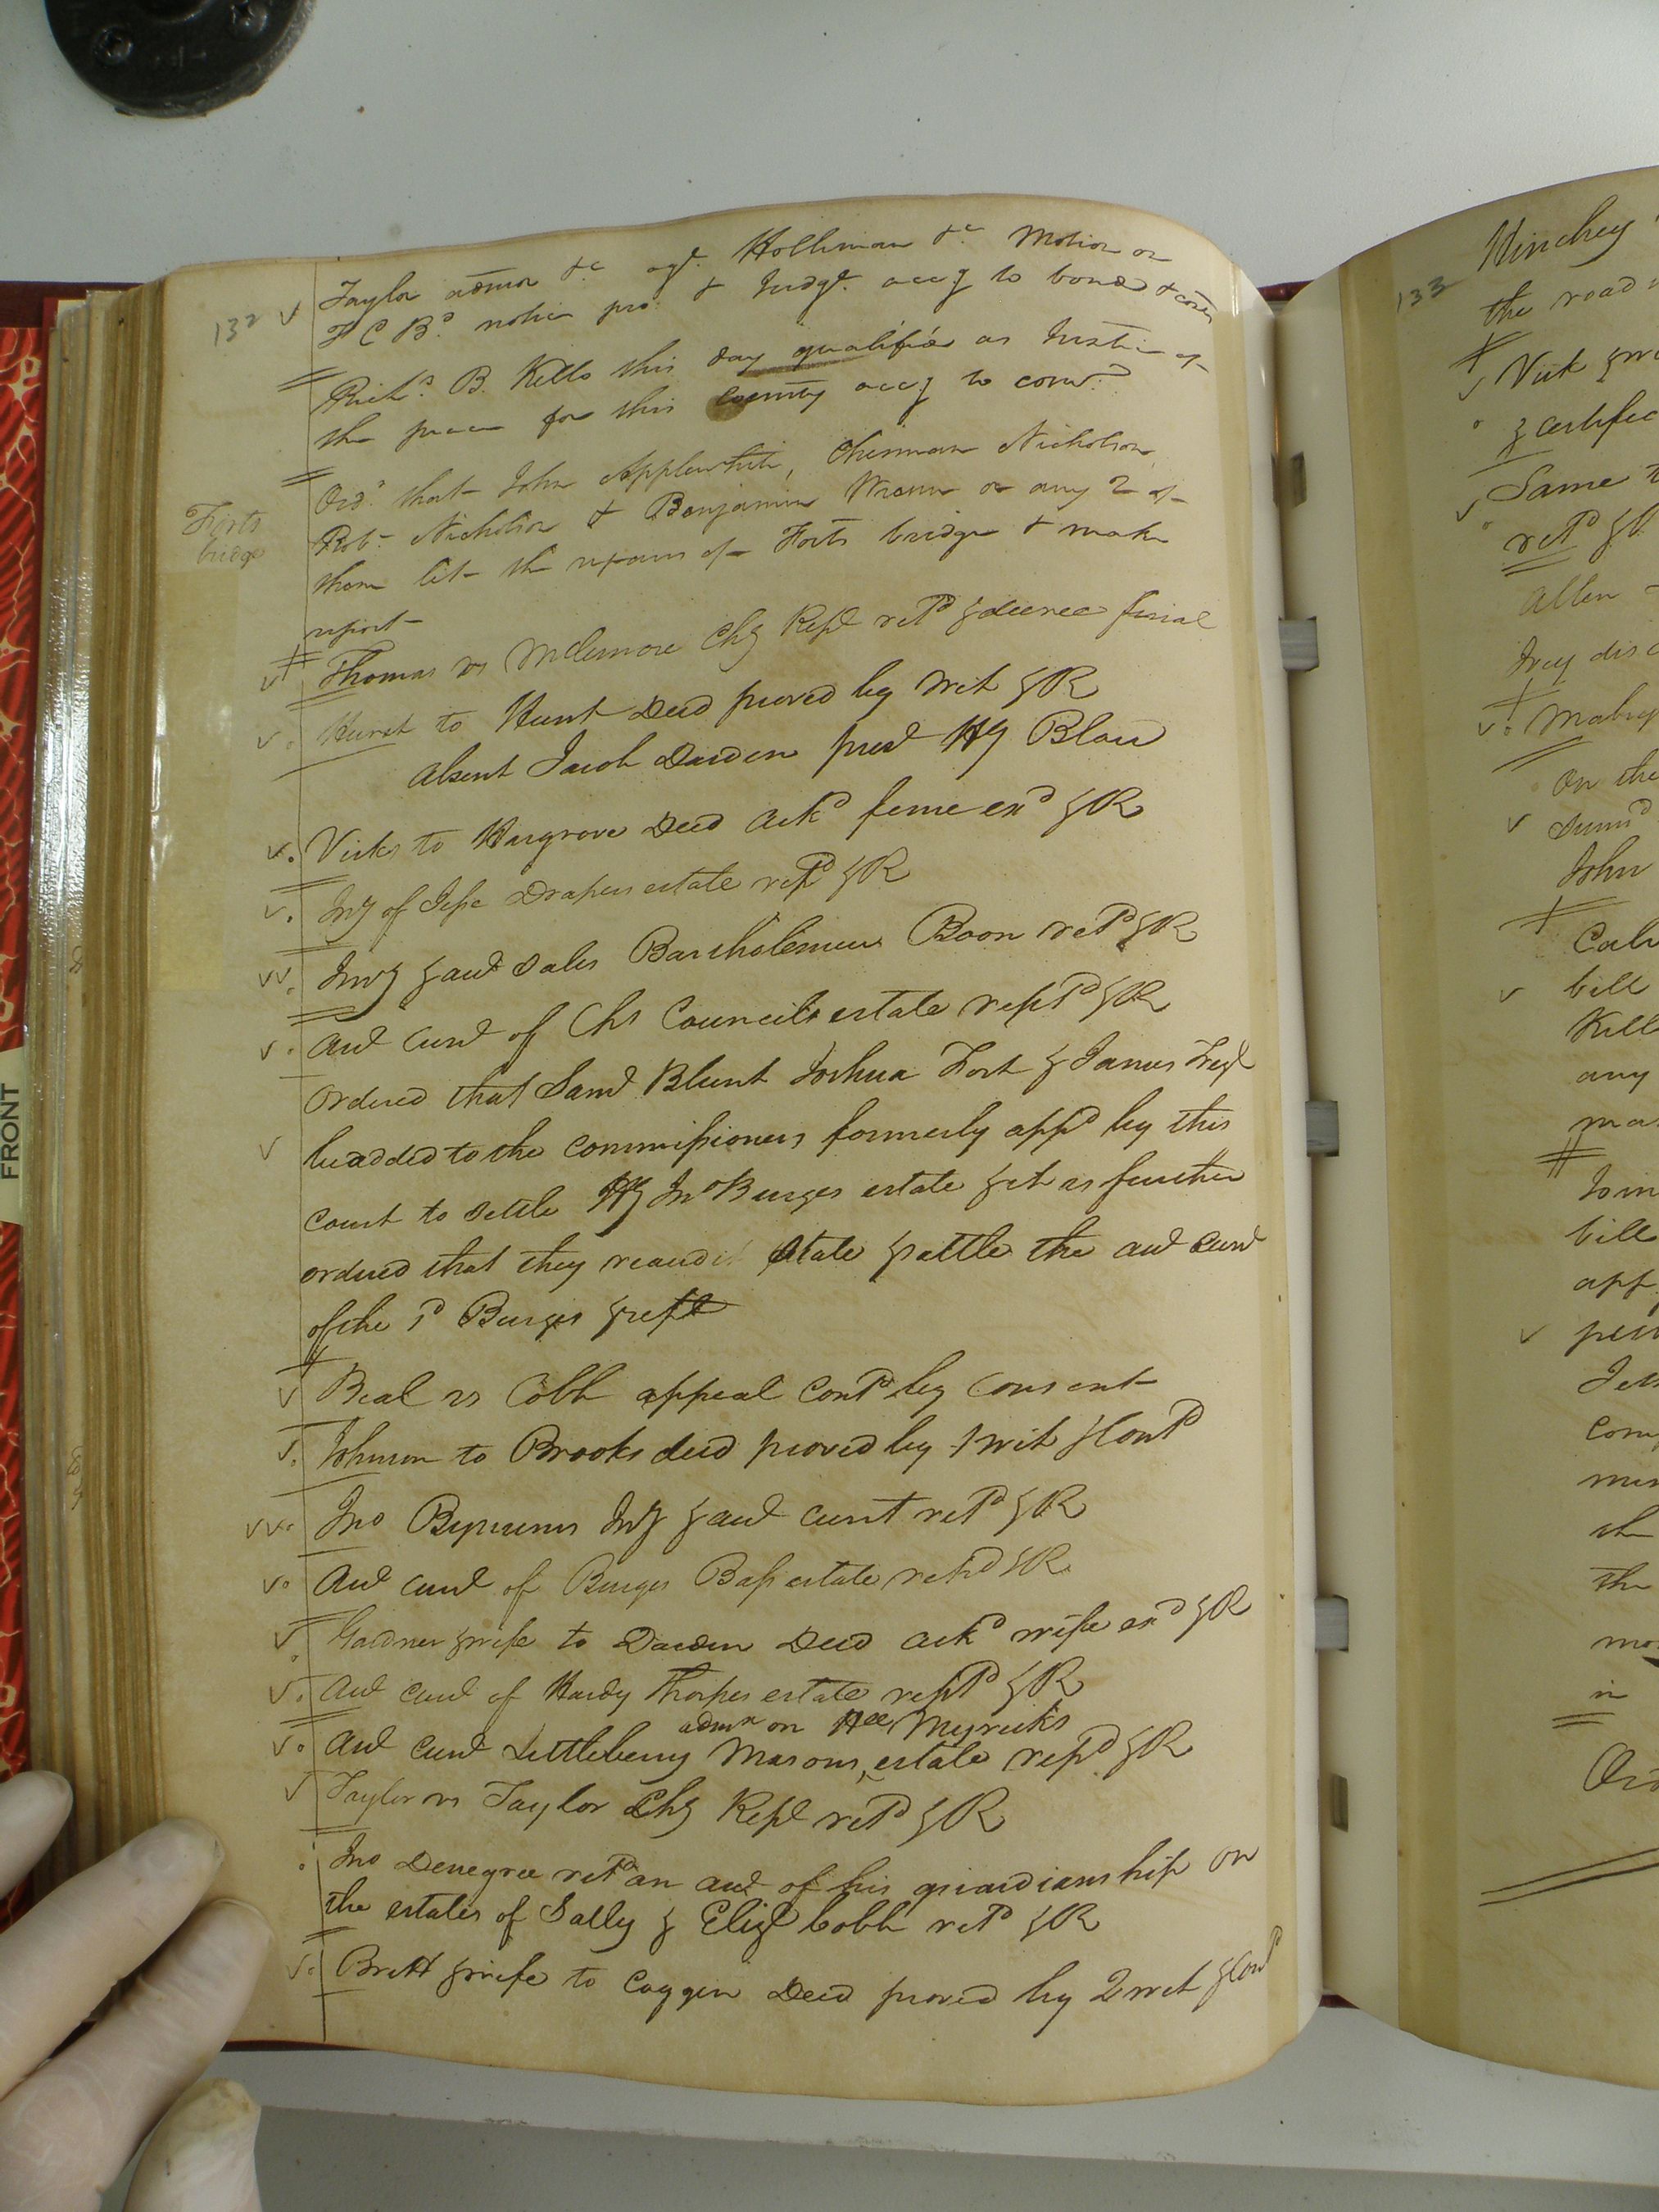 132
Taylor admor &c agt. Holliman &c Motion on
F C Bd. notice pro. & Judgt. accg to bond & costs
Richd. B. Kello this day qualified as Justice of
the peace for this County accg to comn.
Ordd. that John Applewhite, Nicholson,
Robt. Nicholson & Benjamin or any 2 of
them let the repairs of Forts bridge & make
report
Forts
bridge
Thomas vs McLemore Chy Rept retd & decree final
Hurst to Hunt Deed proved by Wit & R
Absent Jacob Darden prest Hy Blow
Vicks to Hargrove Deed Ackd feme exd & R
Invy of Jesse Drapers estate retd & R
Invy & aud Sales Bartholemew Boon retd & R
Aud Curt of Chs Councils estate rept & R
Ordered that Saml Blunt Joshua Fort & James
be added to the Commissioners formerly appd by this
Court to settle Jno Burges estate & it is further
ordered that they reaudit state & settle the aud Curt
of the sd Burges & rept
Beal vs Cobb appeal Contd by Consent
Johnson to Brooks deed proved by 1 wit & Contd
Jno Bynums Invy & aud curt retd & R
Aud curt of Burges Bass estate retd & R
Gardner & wife to Darden Deed Ackd wife exd & R
Aud curt of Hardy Thorpes estate rept & R
admr on Myricks
Aud Curt Littleberry Masons estate retd & R
Taylor vs Taylor Chy Rept retd & R
Jno Denegree retd an aud of his guardianship on
the estates of Sally & Eliz Cobb retd & R
Britt & wife to Coggin Deed proved by 2 wit & Contd
133
Hinchey
the road
Vick
& certific
Same to
retd & R
Allen
discs
On the
summd
John
bill
any
bill
app
the
in
FRONT